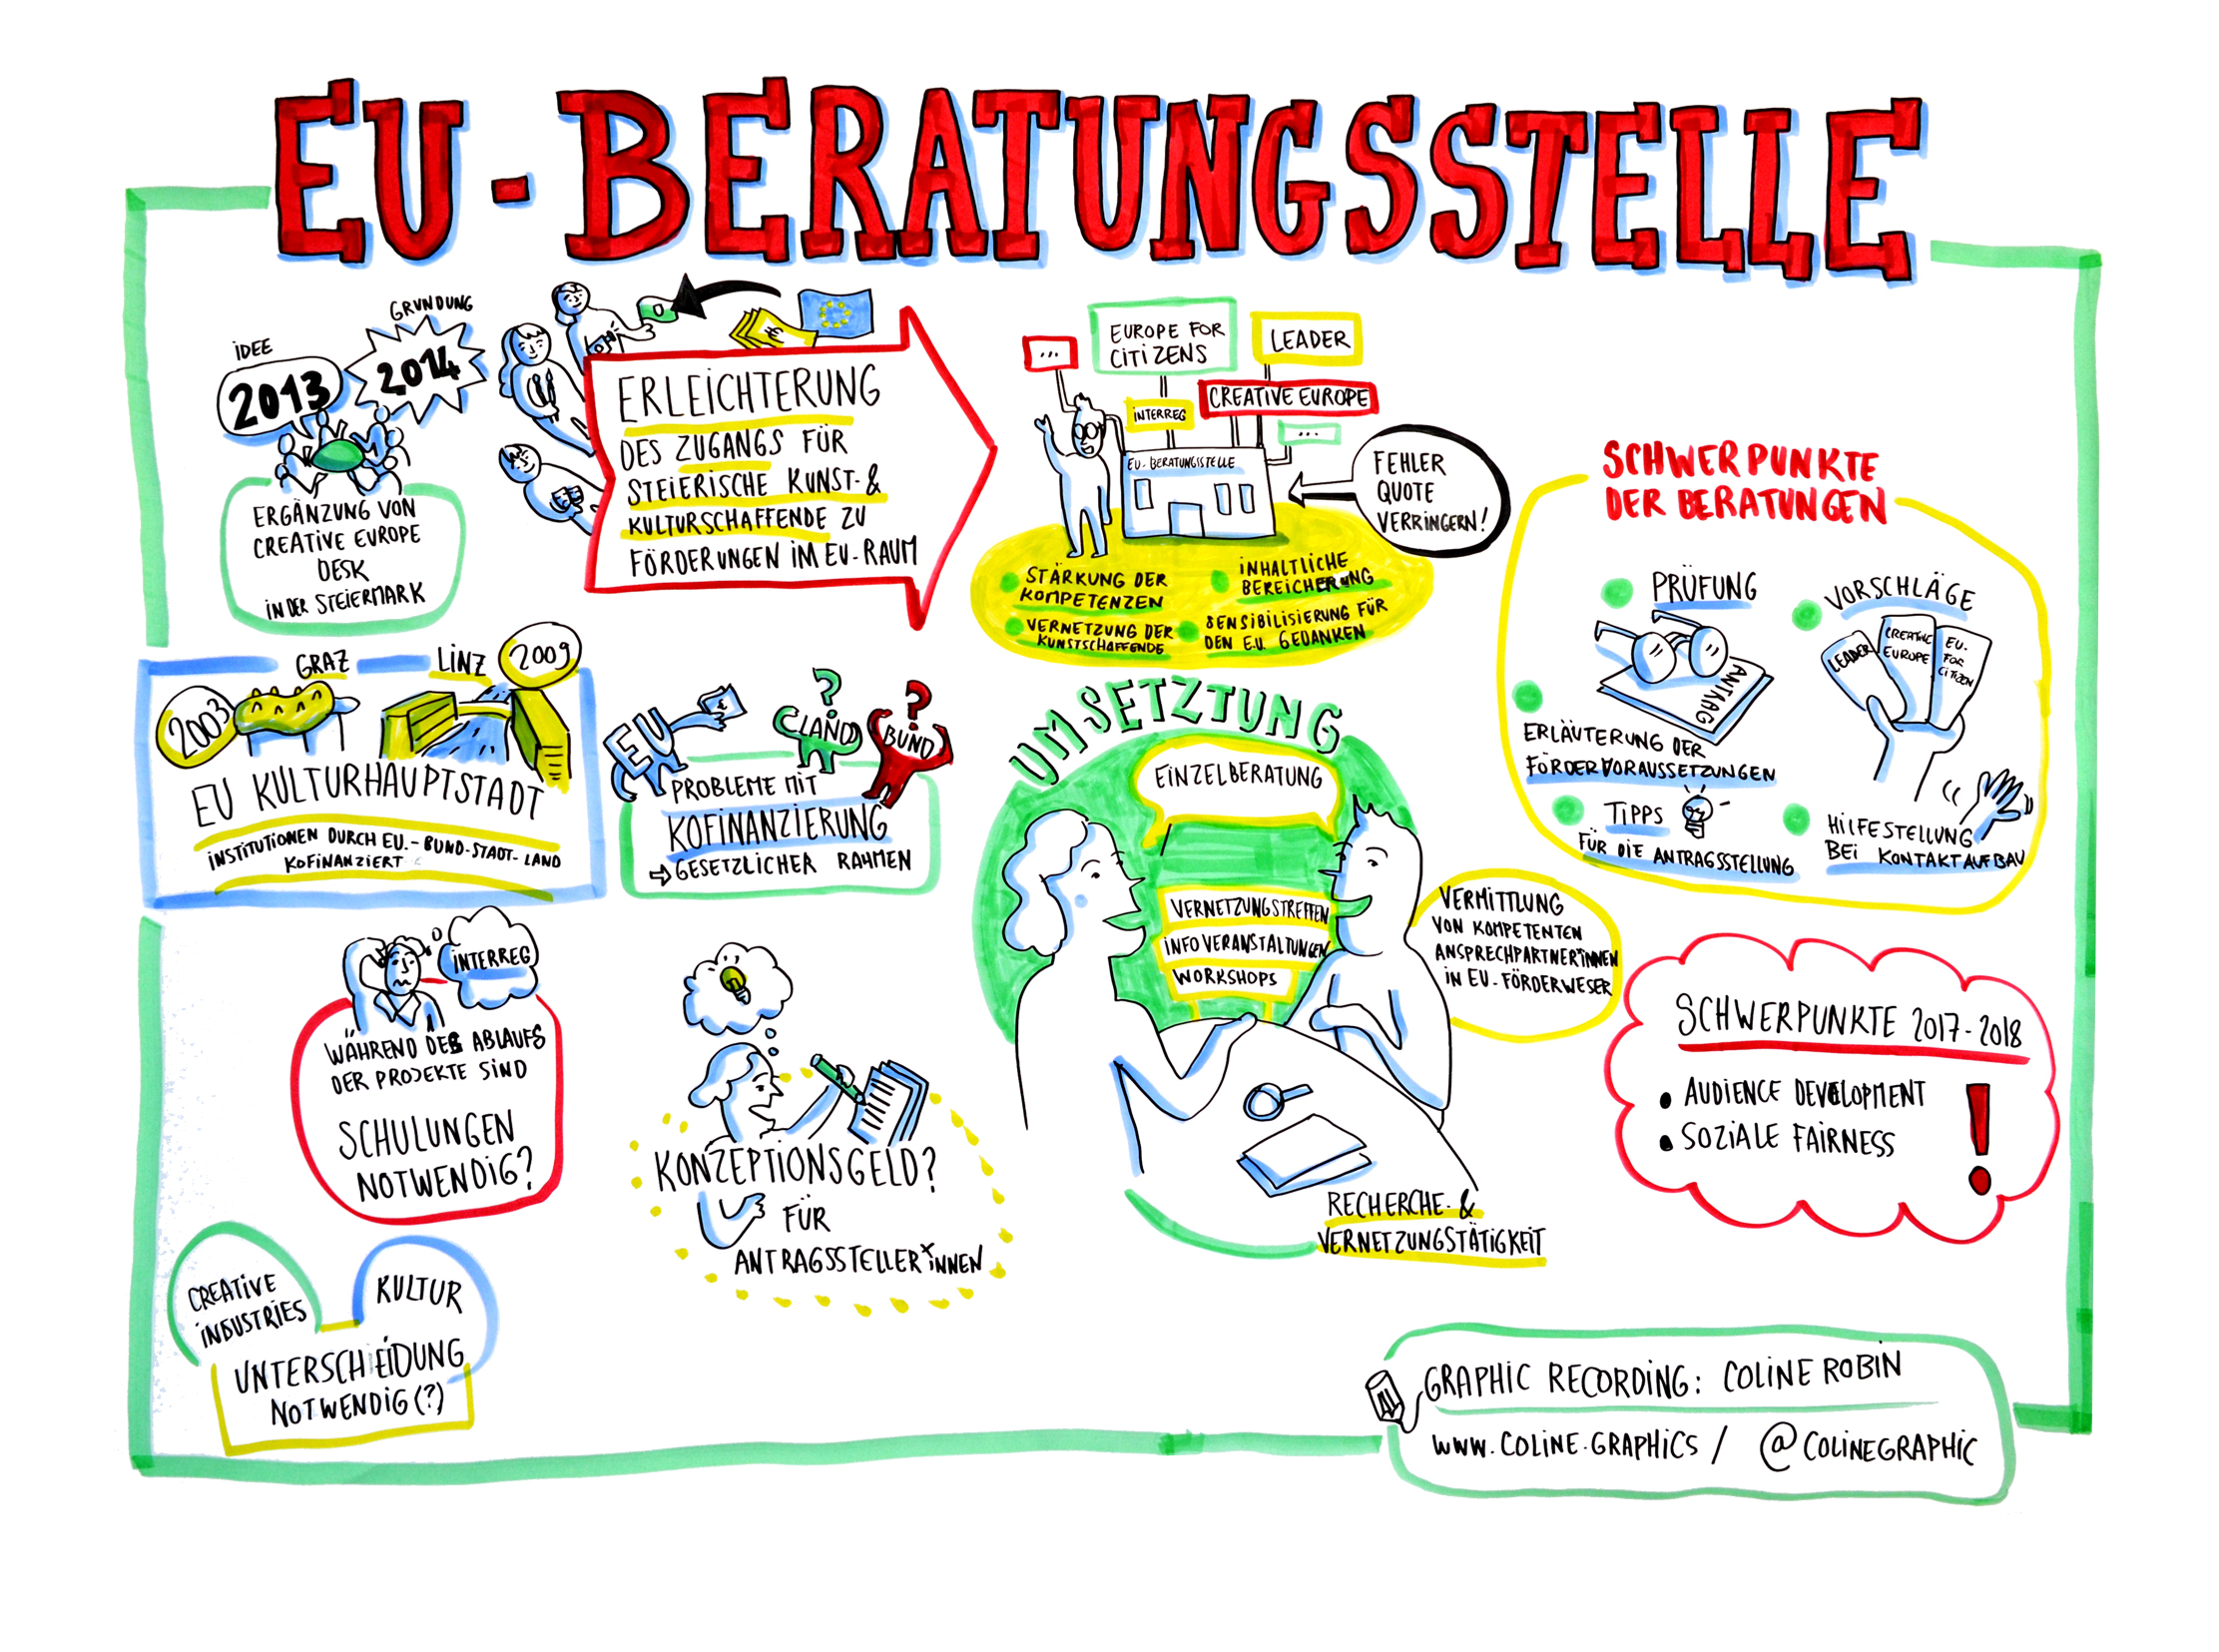 EU-BERATUNGSSTELLE
IDEE
2013
GRÜNDUNG
2014
ERGÄNZUNG VON
CREATIVE EUROPE
DESK
IN DER STEIERMARK
€
ERLEICHTERUNG
DES ZUGANGS FÜR
STEIERISCHE KUNST- &
KULTURSCHAFFENDE ZU
FÖRDERUNGEN IM EU-RAUM
...
EUROPE FOR
CITIZENS
LEADER
INTERREG
CREATIVE EUROPE
...
EU-BERATUNGSSTELLE
FEHLER
QUOTE
VERRINGERN!
STÄRKUNG DER
KOMPETENZEN
VERNETZUNG DER
KUNSTSCHAFFENDE
INHALTLICHE
BEREICHERUNG
SENSIBILISIERUNG FÜR
DEN E.U. GEDANKEN
SCHWERPUNKTE
DER BERATUNGEN
PRÜFUNG
ANTRAG
VORSCHLÄGE
LEADER
CREATIVE
EUROPE
EU.
FOR
CITIZEN
ERLÄUTERUNG DER
FÖRDERVORAUSSETZUNGEN
TIPPS
FÜR DIE ANTRAGSSTELLUNG
HILFESTELLUNG
BEI KONTAKTAUFBAU
2003
GRAZ
LINZ
2009
EU KULTURHAUPTSTADT
INSTITUTIONEN DURCH EU.-BUND-STADT-LAND
KOFINANZIERT
EU
€
?
LAND
?
BUND
PROBLEME MIT
KOFINANZIERUNG
⇨ GESETZLICHER RAHMEN
UMSETZTUNG
EINZELBERATUNG
VERNETZUNGSTREFFEN
INFOVERANSTALTUNGEN
WORKSHOPS
VERMITTLUNG
VON KOMPETENTEN
ANSPRECHPARTNER*INNEN
IN EU-FÖRDERWESER
RECHERCHE- &
VERNETZUNGSTÄTIGKEIT
SCHWERPUNKTE 2017-2018
• AUDIENCE DEVELOPMENT
• SOZIALE FAIRNESS
!
INTERREG
WÄHREND DES ABLAUFS
DER PROJEKTE SIND
SCHULUNGEN
NOTWENDIG?
KONZEPTIONSGELD?
FÜR
ANTRAGSSTELLER*INNEN
CREATIVE
INDUSTRIES
KULTUR
UNTERSCHEIDUNG
NOTWENDIG(?)
GRAPHIC RECORDING: COLINE ROBIN
WWW.COLINE.GRAPHICS / @COLINEGRAPHIC